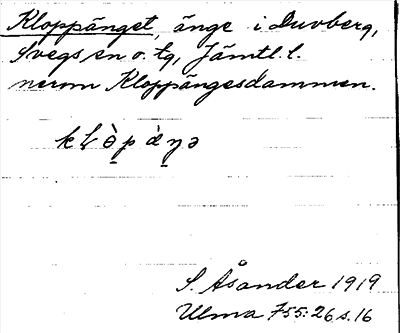 Kloppänget, änge i Duvberg,
Svegs sn o. tg, Jämtl. l.
nerom Kloppängesdammen.
S. Åsander 1919
Ulma 755:26 s. 16